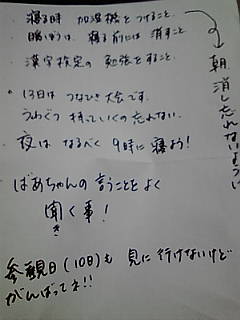 ・寝る時 加湿機をつけること。
・暖ぼうは、寝る前には消すこと。
・漢字検定の勉強をすること。
朝、消し忘れないように
・13日はつなひき大会です。
うわぐつ 持っていくの忘れない。
・夜は なるべく 9時に寝よう!
・ばあちゃんの 言うことをよく
聞く事!
き
参観日(10日)も 見に行けないけど
がんばってネ!!